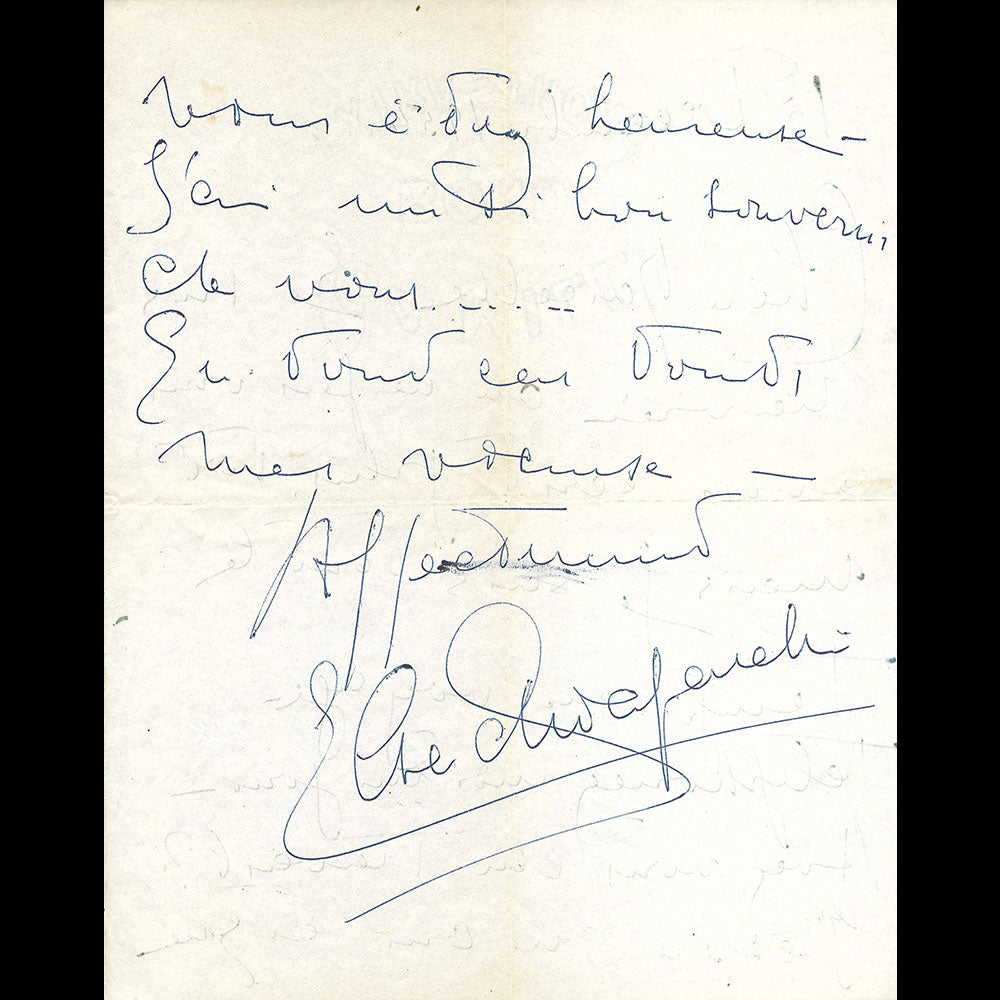 vous êtes heureuse –
J'ai un si bon souvenir
de vous.....
En tout cas toutes
mes voeux –
Affectueusement
Elsa Schiaparelli